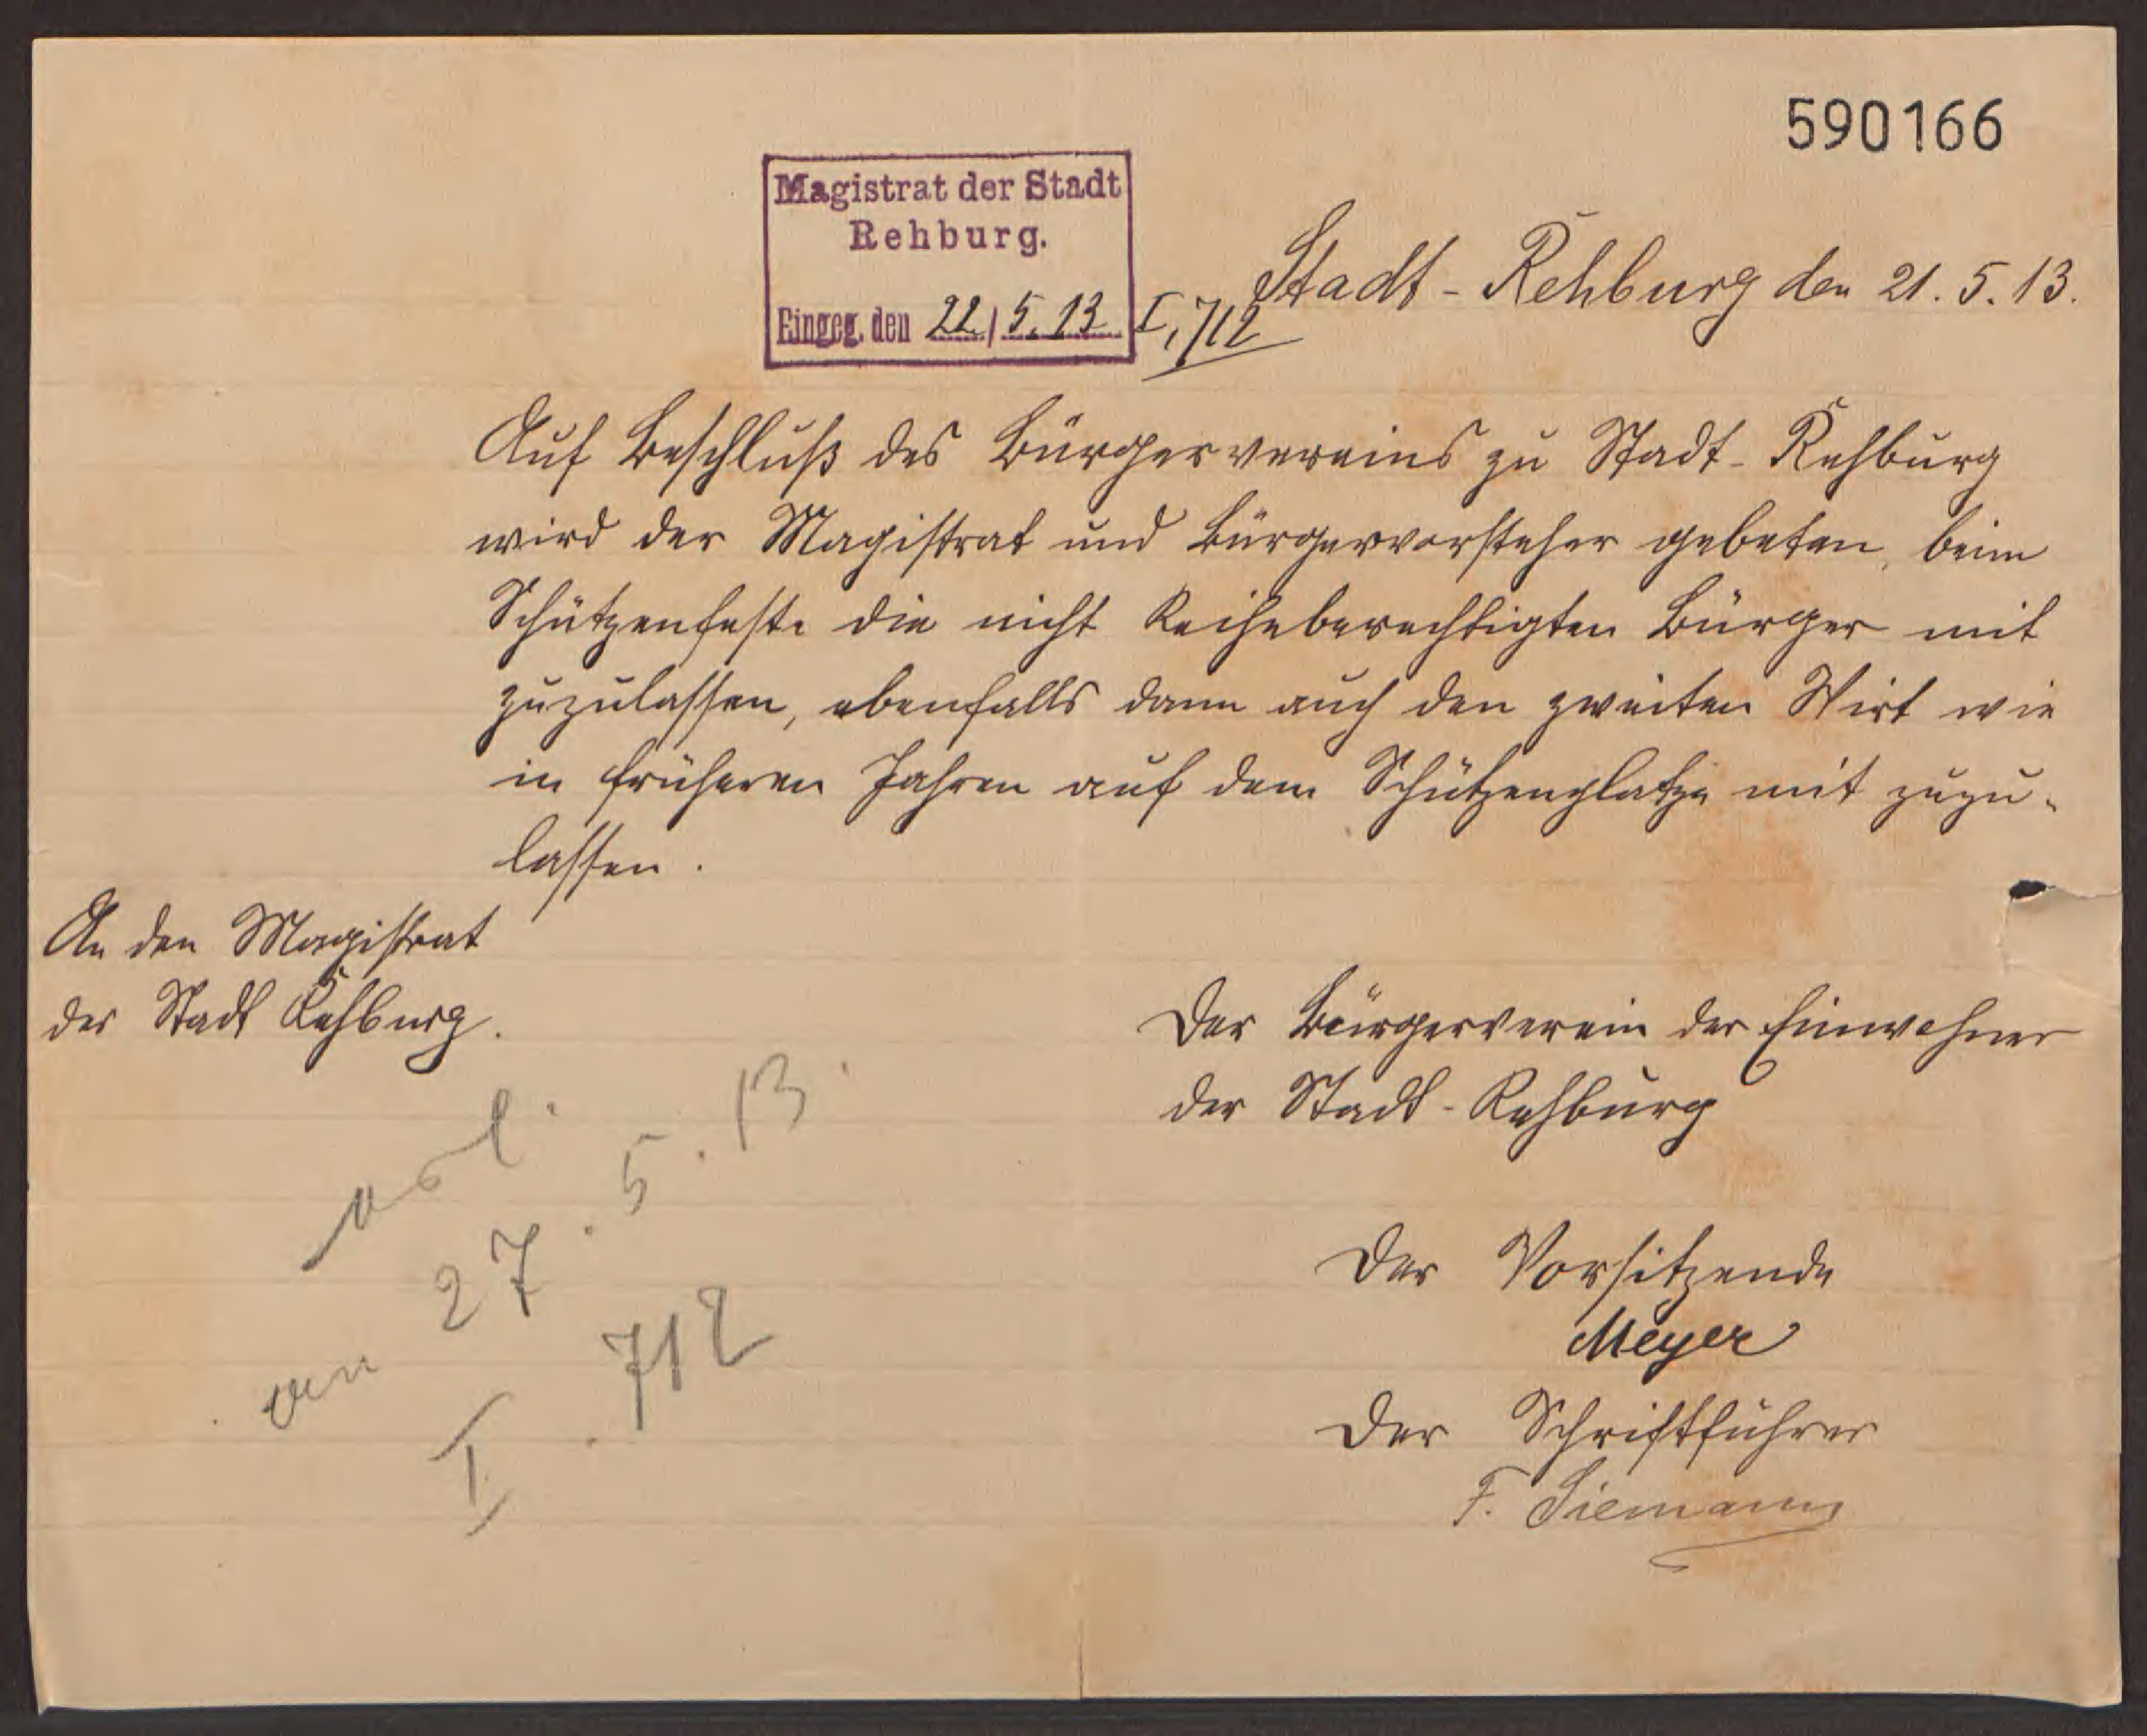 590166
Magistrat der Stadt
Rehburg.
Eingeg. den 22./5. 13
I, 712
Stadt-Rehburg den 21. 5. 13.
Auf Beschluß des Bürgervereins zu Stadt-Rehburg
wird der Magistrat und Bürgervorsteher gebeten, beim
Schützenfeste die nicht Reiheberechtigten Bürger mit
zuzulassen, ebenfalls dann auch den zweiten Wirt wie
in früheren Jahren auf dem Schützenplatze mit zuzu-
lassen.
An den Magistrat
der Stadt Rehburg.
Der Bürgerverein der Einwohner
der Stadt-Rehburg
Der Vorsitzende
Meyer
Der Schriftführer
F. Siemann
27. 5. 13.
I. 712